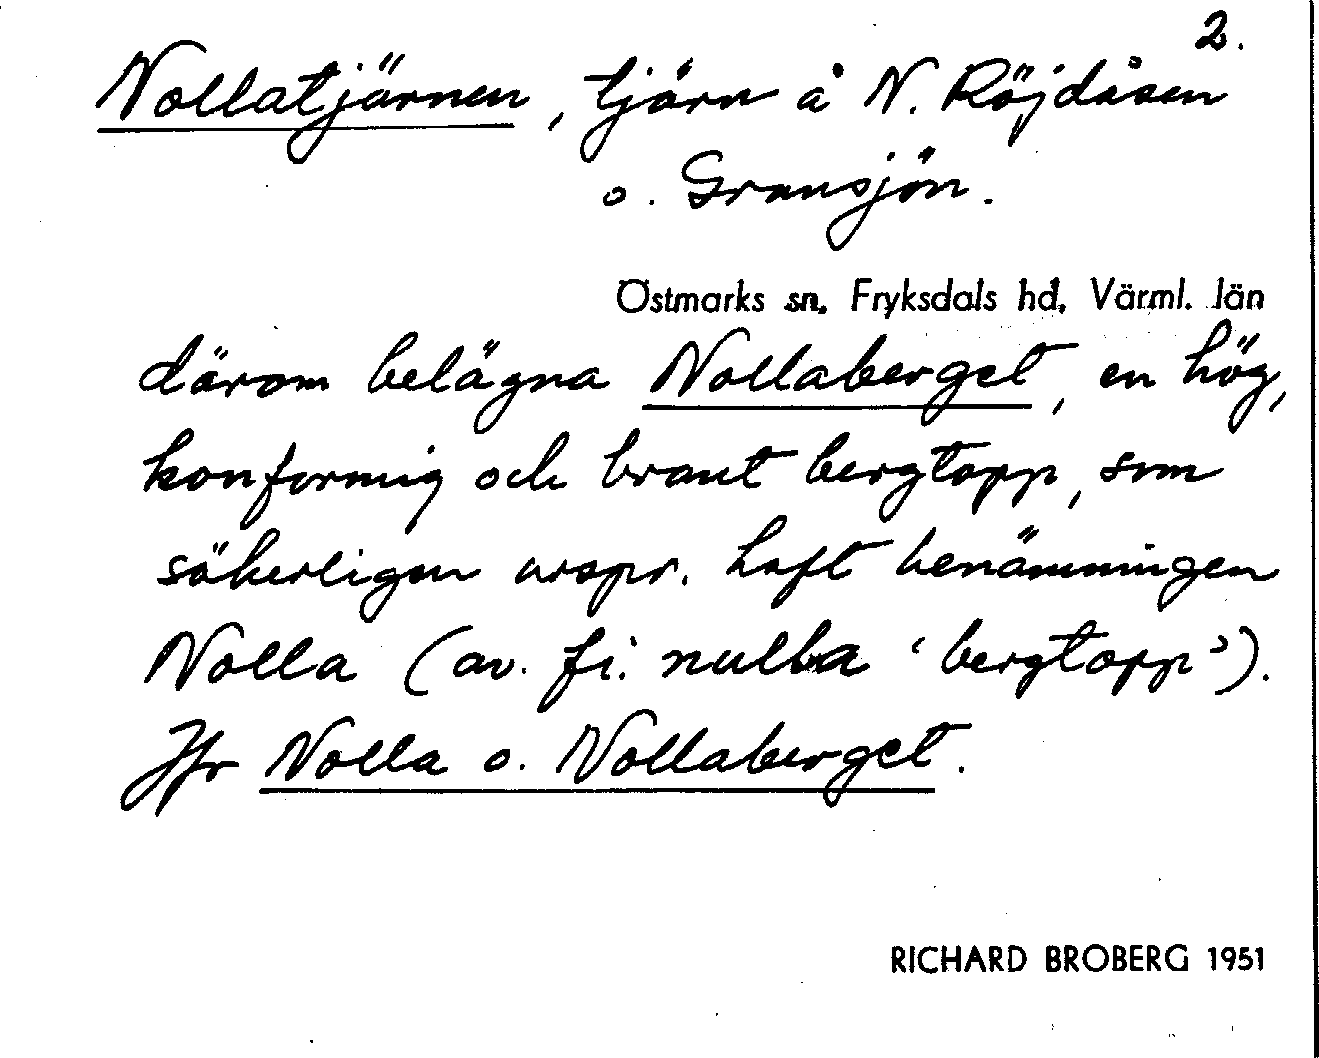 2.
Nollatjärnen, tjärn å N. Röjdåsen
o. Gransjön.
Östmarks sn, Fryksdals hd, Värml. län
därom belägna Nollaberget, en hög,
konformig och brant bergtopp, som
säkerligen urspr. haft benämningen
Nolla (av. fi. nulba 'bergtopp').
Jfr Nolla o. Nollaberget.
RICHARD BROBERG 1951